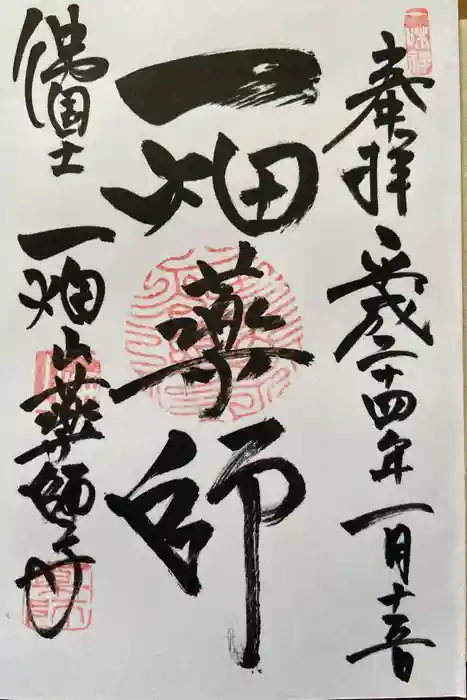 奉拝 平成二十四年一月十五日
一畑薬師
佛国土 一畑山薬師寺